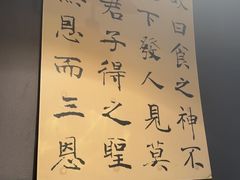 曰食之神不
下發人見莫
君子得之聖
恩而三恩